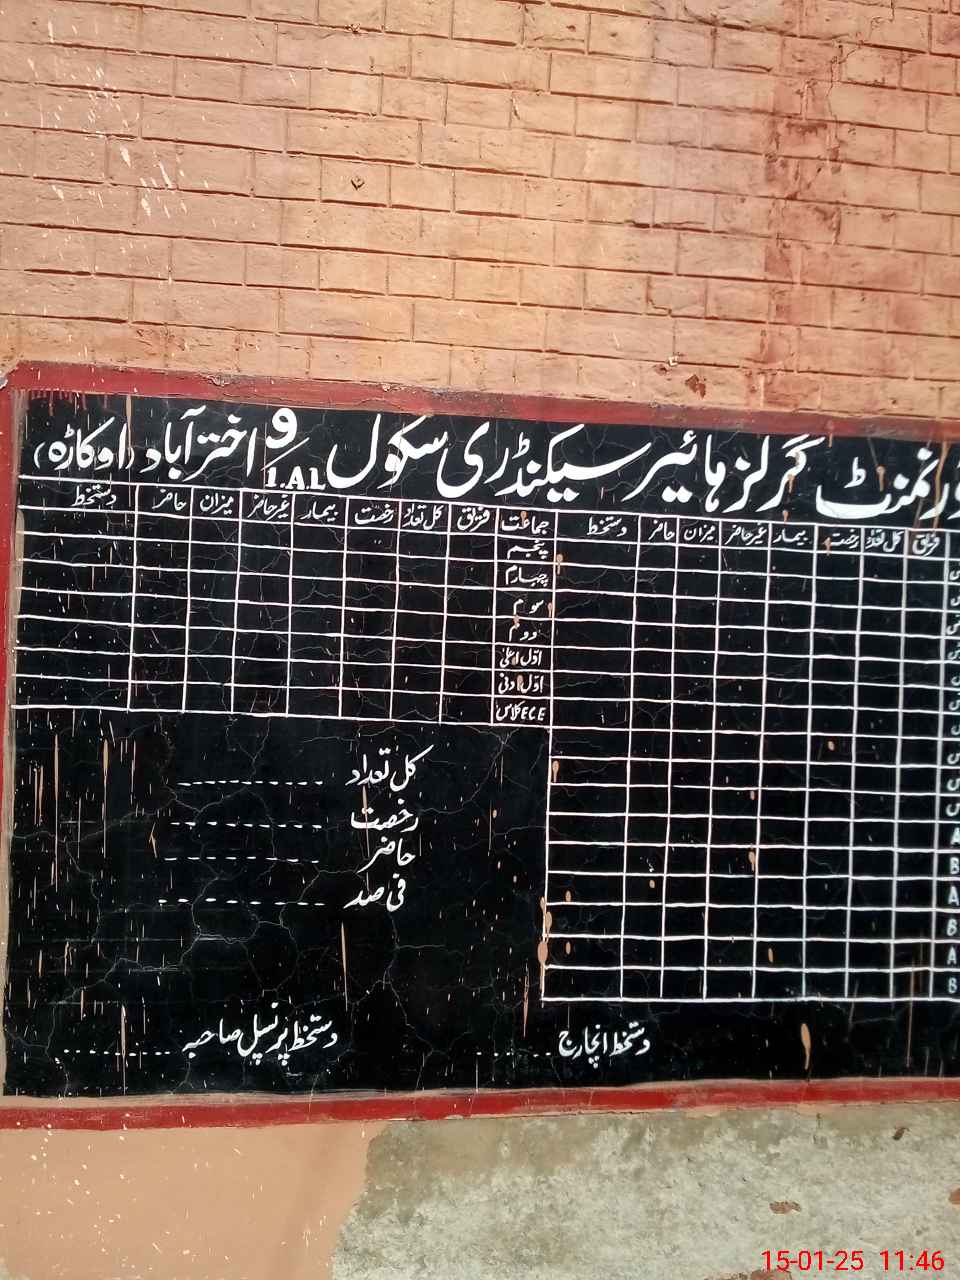 گرلز ہائیر سیکنڈری سکول 9/1.A.L اختر آباد (اوکاڑہ)
فریق کل تعداد رخصت بیمار غیر حاضر میزان حاضر دستخط
جماعت فریق کل تعداد رخصت بیمار غیر حاضر میزان حاضر دستخط
پنجم
چہارم
سوم
دوم
اوّل اعلیٰ
اوّل ادنیٰ
ECE کلاس
A
B
A
B
A
B
کل تعداد
رخصت
حاضر
فی صد
دستخط انچارج دستخط پرنسپل صاحبہ
15-01-25 11:46